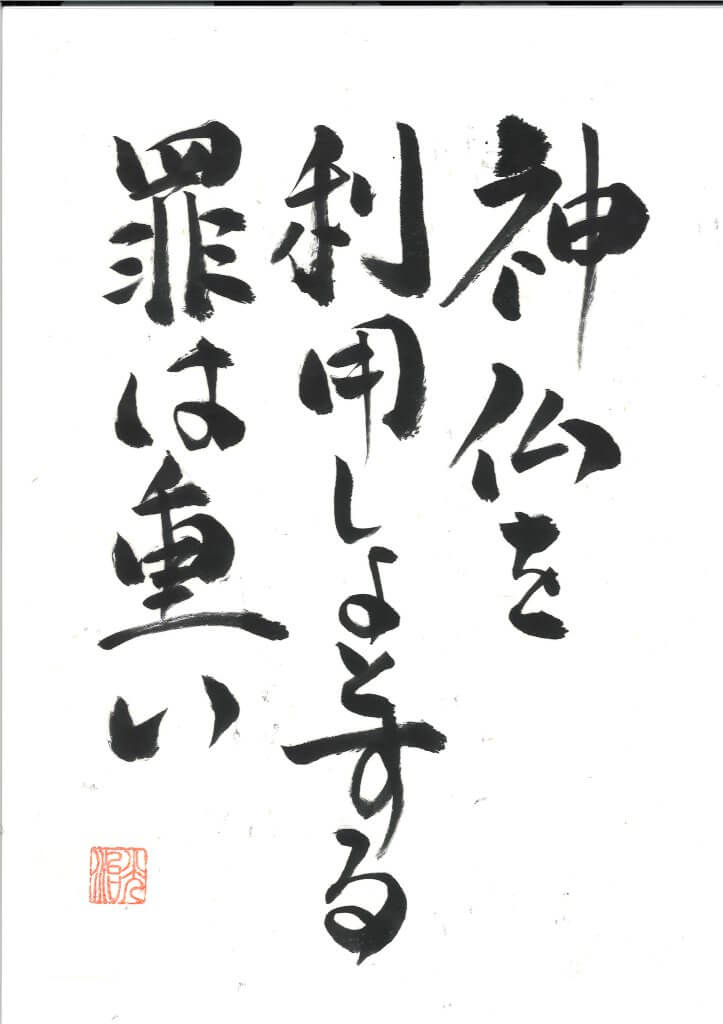 神仏を
利用しよとする
罪は重い